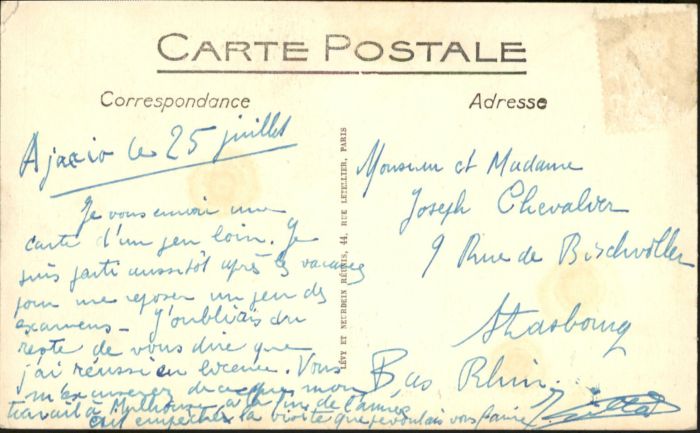 CARTE POSTALE
Correspondance
Adresse
Ajaccio le 25 juillet
Je vous envoie une
carte d'un peu loin. Je
suis parti aussitôt après les vacances
pour me reposer un peu des
examens - J'oubliais du
reste de vous dire que
j'ai réussi en licence. Vous
m'excuserez de ce que mon
travail à Mulhouse à la fin de l'année
ait empêché la visite que je voulais vous faire
LÉVY ET NEURDEIN RÉUNIS, 44, RUE LETELLIER, PARIS
Monsieur et Madame
Joseph Chevalier
9 Rue de Bischwiller
Strasbourg
Bas Rhin